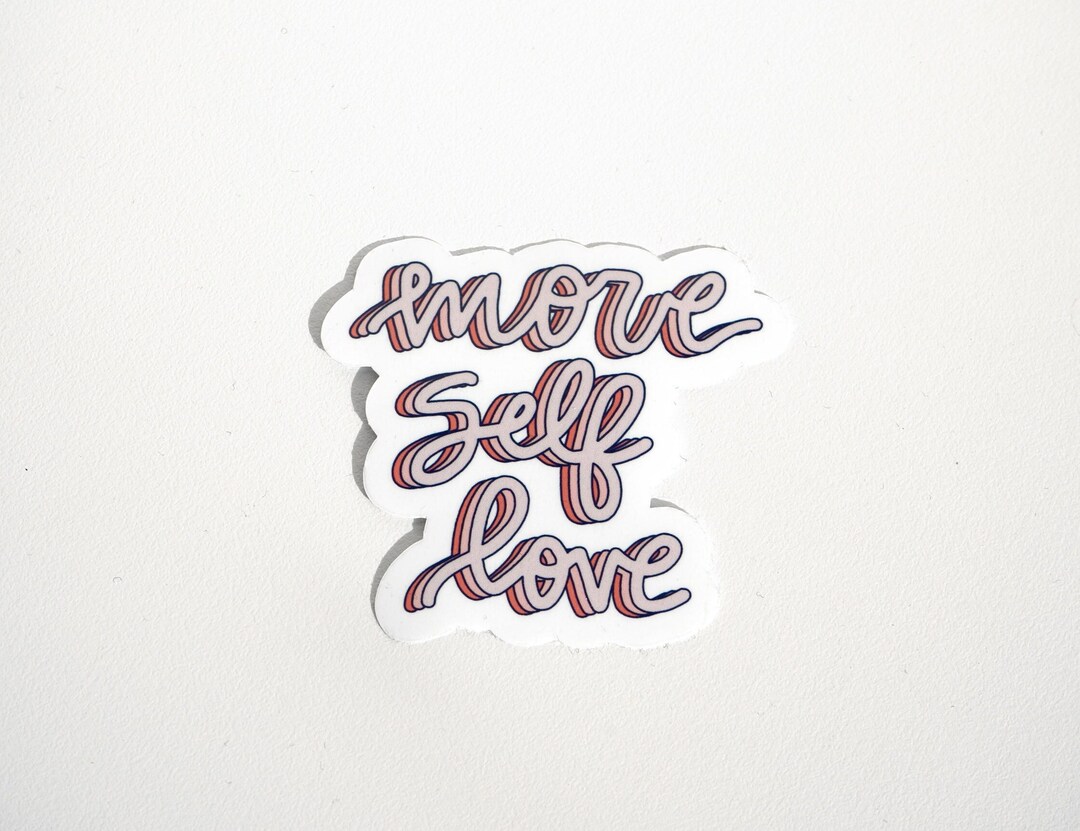 more
self
love